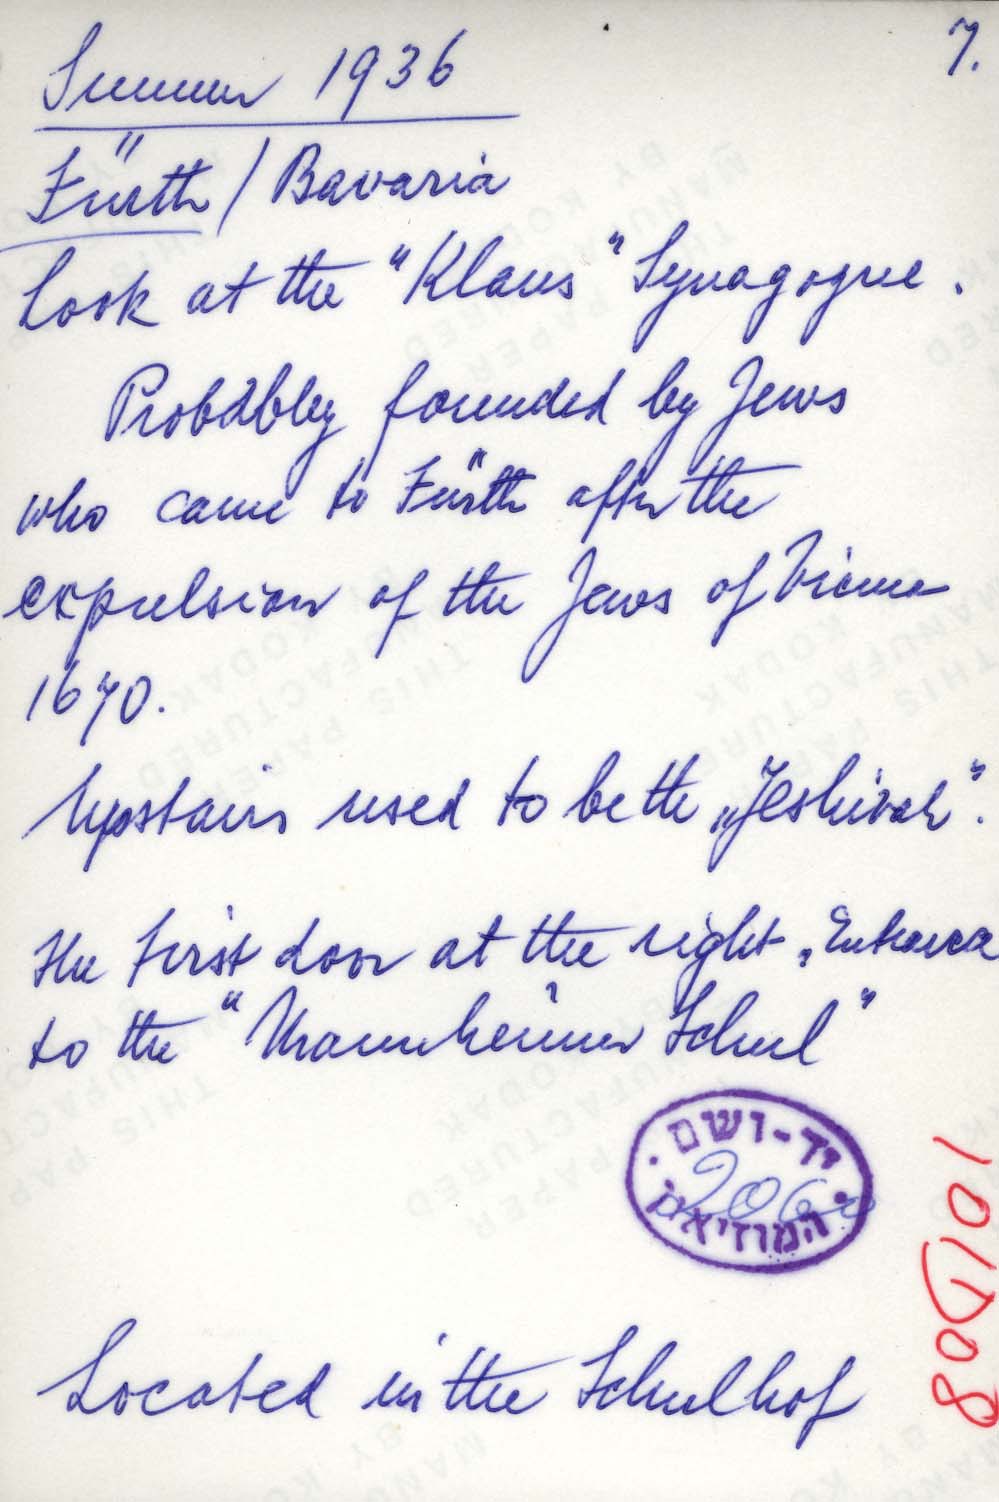 7.
Summer 1936
Fürth / Bavaria
Look at the "Klaus" Synagogue.
Probably founded by Jews
who came to Fürth after the
expulsion of the Jews of Vienna
1670.
Upstairs used to be the „Jeshivah".
The first door at the right, Entrance
to the "Mannheimer Schul"
יד-ושם
206
המוזיאון
101D08
Located in the Schulhof
THIS PAPER
MANUFACTURED
BY KODAK